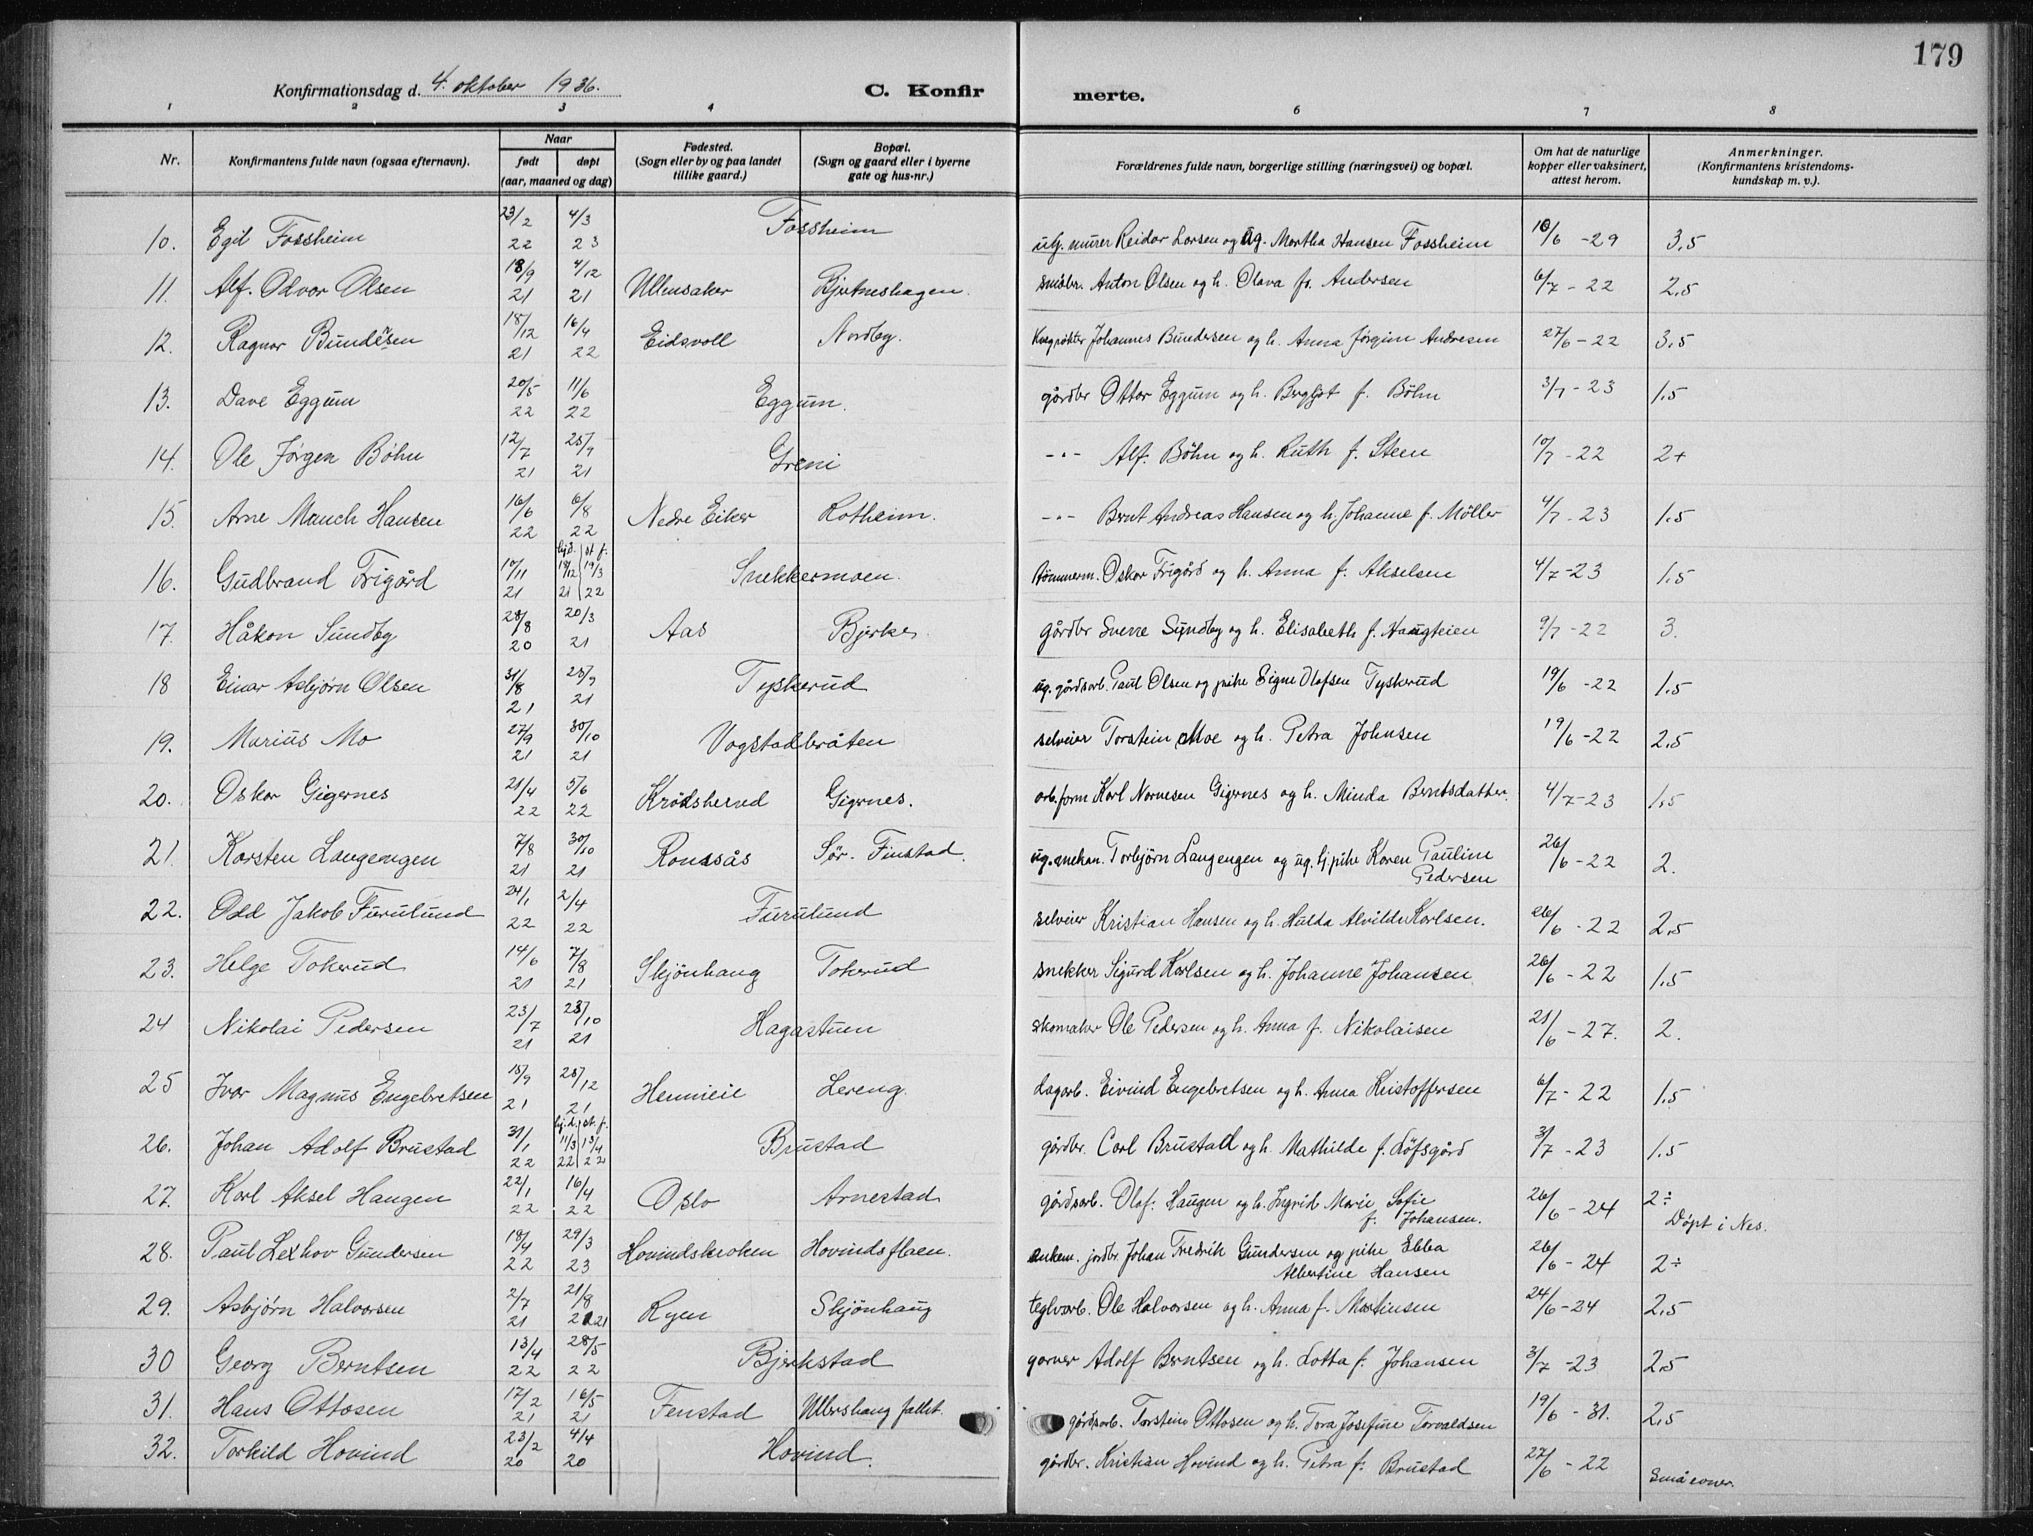 179
Konfirmationsdag d. 4. oktober 1936.
C. Konfir merte.
1 2 3 4 6 7 8
Nr. Konfirmantens fulde navn (ogsaa efternavn). Naar født døpt (aar, maaned og dag) Fødested. (Sogn eller by og paa landet tillike gaard.) Bopæl. (Sogn og gaard eller i byerne gate og hus-nr.) Forældrenes fulde navn, borgerlige stilling (næringsvei) og bopæl. Om hat de naturlige kopper eller vaksinert, attest herom. Anmerkninger. (Konfirmantens kristendoms-kundskap m. v.).
10. Egil Fossheim 23/2 22 4/3 23 Fossheim ug. murer Reidar Larsen og ug. Martha Hansen Fossheim 10/6 - 29 3,5
11. Alf. Odvar Olsen 18/9 21 4/12 21 Ullensaker Bjertneshagen. småbr. Anton Olsen og h. Olava f. Andersen 6/7 - 22 2,5
12. Ragnar Bundesen 18/12 21 16/4 22 Eidsvoll Nordby. Johannes Bundersen og h. Anna Jørgine Andresen 27/6 - 22 3,5
13. Dave Eggum 20/5 22 11/6 22 Eggum. gårdbr Ottar Eggum og h. Bergljot f. Bøhn 3/7 - 23 1.5
14. Ole Jørgen Bøhn 12/7 21 25/9 21 Greni -"- Alf. Bøhn og h. Ruth f. Steen 10/7 - 22 2+
15. Arne Manch Hansen 16/6 22 6/8 22 Nedre Eiker Rotheim. -"- Bernt Andreas Hansen og h. Johanne f. Møller 4/7 - 23 1.5
16. Gudbrand Trigård 10/11 21 hj.d. 18/12 21 st. f. 19/3 22 Snekkermoen. tømmerm. Oskar Trigård og h. Anna f. Akselsen 4/7 - 23 1.5
17. Håkon Sundby 28/8 20 20/3 21 Aas Bjerke gårdbr Sverre Sundby og h. Elisabeth f. Haugteien 9/7 - 22 3.
18 Einar Asbjørn Olsen 31/8 21 25/9 21 Tyskerud ug. gårdsarb. Paul Olsen og pike Signe Olafsen Tyskerud 19/6 - 22 1.5
19. Marius Mo 27/9 21 30/10 21 Vogstadbråten selveier Torstein Moe og h. Petra Johnsen 19/6 - 22 2.5
20. Oskar Gigernes 21/4 22 5/6 22 Krødsherad Gigernes. arb.form Karl Gigernes og h. Minda Berntsdatter. 4/7 - 23 1.5
21. Karsten Langengen 7/8 21 30/10 21 Romsås Sør. Finstad. ug. mekan. Torbjørn Langengen og ug. hj. pike Karen Pauline Pedersen 26/6 - 22 2.
22. Odd Jakob Furulund 24/1 22 2/4 22 Furulund selveier Kristian Hansen og h. Hulda Alvilde Karlsen. 26/6 - 22 2.5
23. Helge Tokerud 14/6 21 7/8 21 Skjønhaug Tokerud snekker Sigurd Karlsen og h. Johanne Johansen 26/6 - 22 1.5
24 Nikolai Pedersen 23/7 21 23/10 21 Hagastuen skomaker Ole Pedersen og h. Anna f. Nikolaisen 21/6 - 27. 2.
25 Ivar Magnus Engebretsen 15/9 21 25/12 21 Hennieie Lereng. dagarb. Eivind Engebretsen og h. Anna Kristoffersen 6/7 - 22 1.5
26. Johan Adolf Brustad 31/1 22 hj.d. 11/3 22 st. f. 13/4 22 Brustad gårdbr. Carl Brustad og h. Mathilde f. Løfsgård 3/7 - 23 1.5
27. Karl Aksel Haugen 22/1 22 16/4 22 Oslo Arnestad gårdsarb. Olaf Haugen og h. Ingrid Marie Sofie f. Johansen. 26/6 - 24 2÷ Døpt i Nes.
28. Paul Lexhov Gundersen 18/4 22 29/3 23 Hovindskroken Hovindsflaen. enkem. jordbr. Johan Fredrik Gundersen og pike Ebba Albertine Hansen 26/6 - 24 2÷
29. Asbjørn Halvorsen 2/7 21 21/8 21 Ryen Skjønhaug teglvarb. Ole Halvorsen og h. Anna f. Martinsen 24/6 - 24 2,5
30 Georg Berntsen 13/4 22 28/5 22 Bjerkstad garver Adolf Berntsen og h. Lotta f. Johansen 3/7 - 23 2.5
31. Hans Ottosen 17/2 21 16/5 21 Fenstad Ullershaug fallet. gårdsarb. Torstein Ottosen og h. Tora Josefine Torvaldsen 19/6 - 31. 2,5
32. Torkild Hovind 23/2 20 4/4 20 Hovind. gårdbr. Kristian Hovind og h. Petra f. Brustad 27/6 - 22 Små evner.